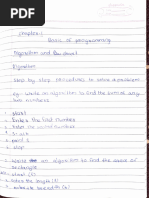 Chapter: 1
Basics of programming
Algorithm and flow chart
Algorithm
Step by step
to solve a problem
eg:- write an algorithm to find the
two numbers
start
Enter the first number
Enter the second number
print S
stop
write an algorithm to find the area of
rectangle
start (1)
enter the length (l)
enter the breadth (b)